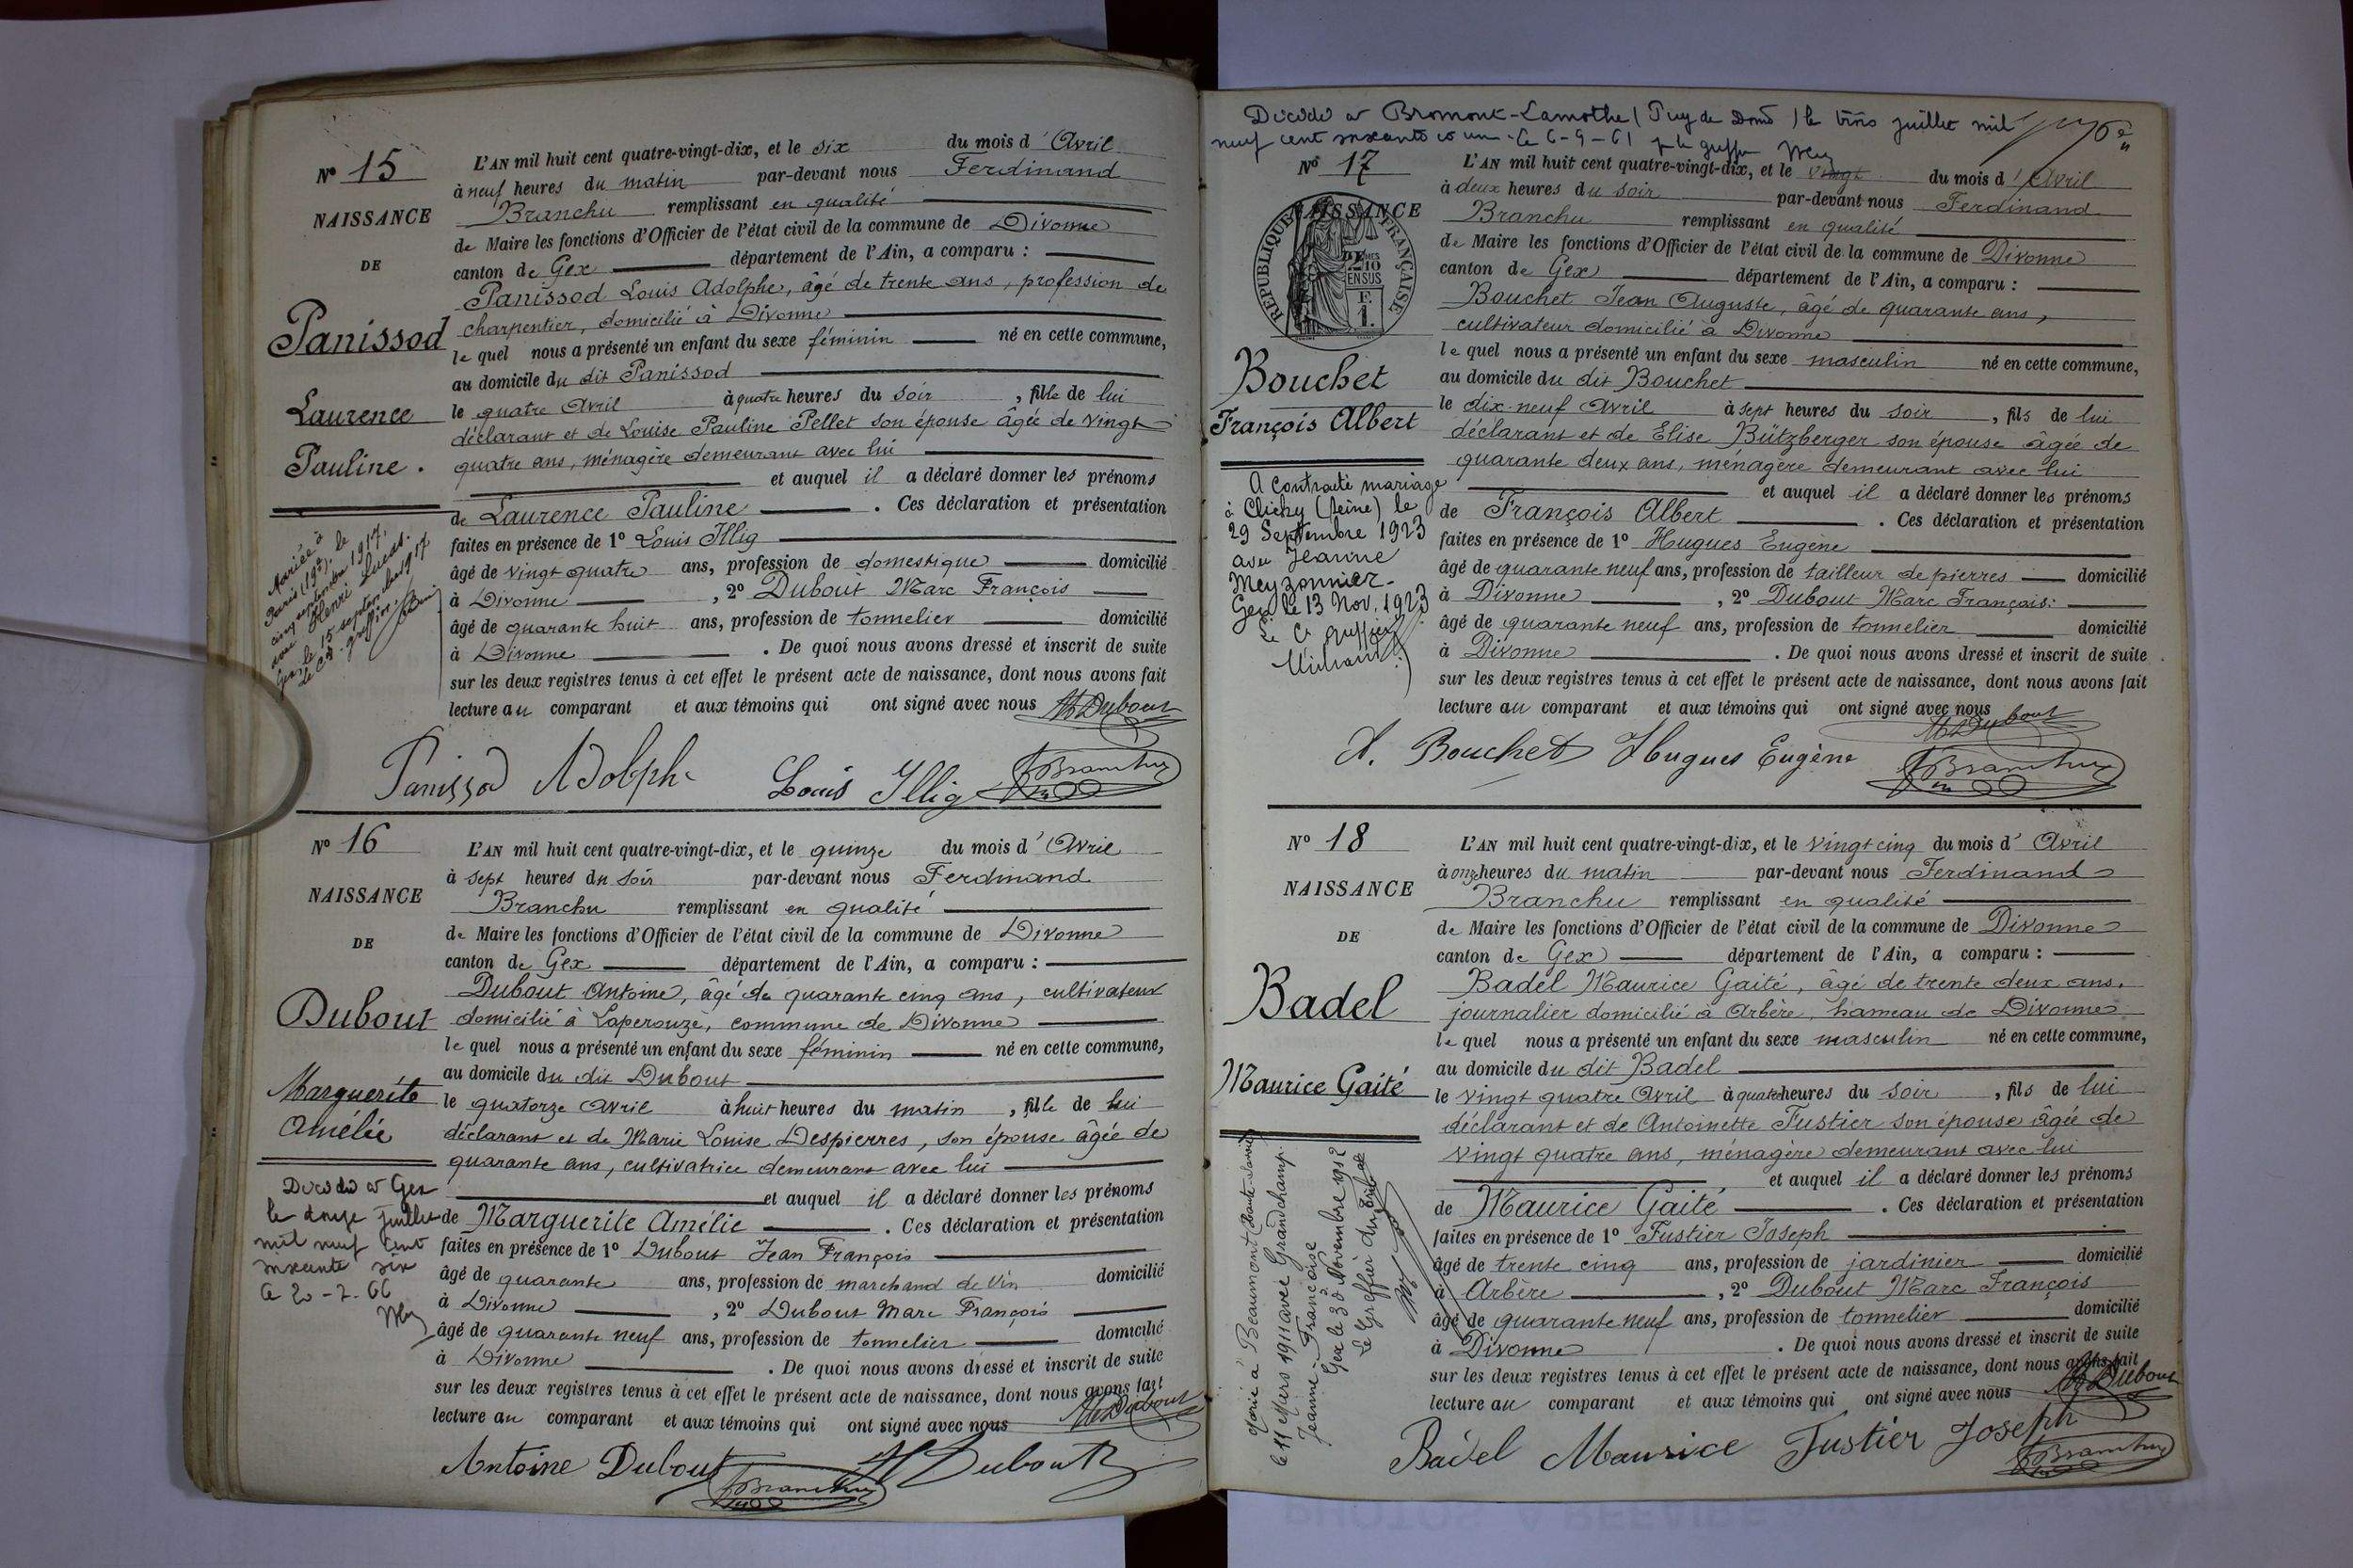 Nº 15
NAISSANCE
DE
Panissod
Laurence
Pauline.
Mariée à
Paris (19e), le
cinq septembre 1917,
avec Henri Lucas.
Gex, le 15 septembre 1917
L'AN mil huit cent quatre-vingt-dix, et le six du mois d'Avril
à neuf heures du matin par-devant nous Ferdinand
Branchu remplissant en qualité
de Maire les fonctions d'Officier de l'état civil de la commune de Divonne
canton de Gex département de l'Ain, a comparu :
Panissod Louis Adolphe, âgé de trente ans, profession de
charpentier, domicilié à Divonne
le quel nous a présenté un enfant du sexe féminin né en cette commune,
au domicile du dit Panissod
le quatre Avril à quatre heures du soir, fille de lui
déclarant et de Louise Pauline Pellet son épouse âgée de vingt
quatre ans, ménagère demeurant avec lui
et auquel il a déclaré donner les prénoms
de Laurence Pauline. Ces déclaration et présentation
faites en présence de 1º Louis Illig
âgé de vingt quatre ans, profession de domestique domicilié
à Divonne, 2º Dubout Marc François
âgé de quarante huit ans, profession de tonnelier domicilié
à Divonne. De quoi nous avons dressé et inscrit de suite
sur les deux registres tenus à cet effet le présent acte de naissance, dont nous avons fait
lecture au comparant et aux témoins qui ont signé avec nous MDubout
Panissod Adolphe Louis Illig Branchu
Nº 16
NAISSANCE
DE
Dubout
Marguerite
Amélie
Décédée à Gex
le douze juillet
mil neuf cent
soixante six
Le 20-7-66
L'AN mil huit cent quatre-vingt-dix, et le quinze du mois d'Avril
à sept heures du soir par-devant nous Ferdinand
Branchu remplissant en qualité
de Maire les fonctions d'Officier de l'état civil de la commune de Divonne
canton de Gex département de l'Ain, a comparu :
Dubout Antoine, âgé de quarante cinq ans, cultivateur
domicilié à Laperouze, commune de Divonne
le quel nous a présenté un enfant du sexe féminin né en cette commune,
au domicile du dit Dubout
le quatorze Avril à huit heures du matin, fille de lui
déclarant et de Marie Louise Despierres, son épouse âgée de
quarante ans, cultivatrice demeurant avec lui
et auquel il a déclaré donner les prénoms
de Marguerite Amélie. Ces déclaration et présentation
faites en présence de 1º Dubout Jean François
âgé de quarante ans, profession de marchand de vin domicilié
à Divonne, 2º Dubout Marc François
âgé de quarante neuf ans, profession de tonnelier domicilié
à Divonne. De quoi nous avons dressé et inscrit de suite
sur les deux registres tenus à cet effet le présent acte de naissance, dont nous avons fait
lecture au comparant et aux témoins qui ont signé avec nous MDubout
Antoine Dubout Branchu Dubout
Décédé à Bromont-Lamothe (Puy de Dome) le trois juillet mil
neuf cent soixante et un. Le 6-9-61
Nº 17
NAISSANCE
REPUBLIQUE FRANÇAISE
2/10
EN SUS
Bouchet
François Albert
A contracté mariage
à Clichy (Seine) le
29 Septembre 1923
avec Jeanne
Meyzonnier.
Gex le 13 Nov. 1923
L'AN mil huit cent quatre-vingt-dix, et le vingt du mois d'Avril
à deux heures du soir par-devant nous Ferdinand
Branchu remplissant en qualité
de Maire les fonctions d'Officier de l'état civil de la commune de Divonne
canton de Gex département de l'Ain, a comparu :
Bouchet Jean Auguste, âgé de quarante ans,
cultivateur domicilié à Divonne
le quel nous a présenté un enfant du sexe masculin né en cette commune,
au domicile du dit Bouchet
le dix-neuf Avril à sept heures du soir, fils de lui
déclarant et de Elise Bützberger son épouse âgée de
quarante deux ans, ménagère demeurant avec lui
et auquel il a déclaré donner les prénoms
de François Albert. Ces déclaration et présentation
faites en présence de 1º Hugues Eugène
âgé de quarante neuf ans, profession de tailleur de pierres domicilié
à Divonne, 2º Dubout Marc François:
âgé de quarante neuf ans, profession de tonnelier domicilié
à Divonne. De quoi nous avons dressé et inscrit de suite
sur les deux registres tenus à cet effet le présent acte de naissance, dont nous avons fait
lecture au comparant et aux témoins qui ont signé avec nous
MDubout
A. Bouchet Hugues Eugène Branchu
Nº 18
NAISSANCE
DE
Badel
Maurice Gaité
Marié à Beaumont (Haute-Savoie)
le 11 Mars 1911 avec Grandchamp
Jeanne-Françoise
Gex le 30 Novembre 1912
Le Greffier du
L'AN mil huit cent quatre-vingt-dix, et le vingt cinq du mois d'Avril
à onze heures du matin par-devant nous Ferdinand
Branchu remplissant en qualité
de Maire les fonctions d'Officier de l'état civil de la commune de Divonne
canton de Gex département de l'Ain, a comparu :
Badel Maurice Gaité, âgé de trente deux ans,
journalier domicilié à Arbère, hameau de Divonne
le quel nous a présenté un enfant du sexe masculin né en cette commune,
au domicile du dit Badel
le vingt quatre Avril à quatre heures du soir, fils de lui
déclarant et de Antoinette Fustier son épouse âgée de
vingt quatre ans, ménagère demeurant avec lui
et auquel il a déclaré donner les prénoms
de Maurice Gaité. Ces déclaration et présentation
faites en présence de 1º Fustier Joseph
âgé de trente cinq ans, profession de jardinier domicilié
à Arbère, 2º Dubout Marc François
âgé de quarante neuf ans, profession de tonnelier domicilié
à Divonne. De quoi nous avons dressé et inscrit de suite
sur les deux registres tenus à cet effet le présent acte de naissance, dont nous avons fait
lecture au comparant et aux témoins qui ont signé avec nous MDubout
Badel Maurice Fustier Joseph
Branchu